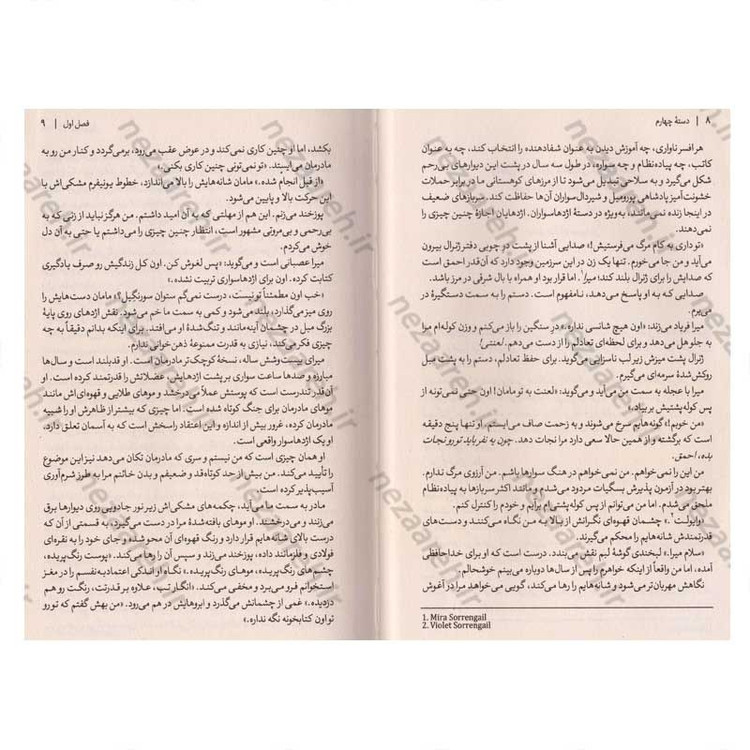 ۸ | دستهٔ چهارم
هر افسر ناواری، چه آموزش دیدن به عنوان شفادهنده را انتخاب کند، چه به عنوان
کاتب، چه پیاده‌نظام و چه سواره، در طول سه سال در پشت این دیوارهای بی‌رحم
شکل می‌گیرد و به سلاحی تبدیل می‌شود تا از مرزهای کوهستانی ما در برابر حملات
خشونت‌آمیز پادشاهی پورومیل و شیردال‌سواران آن‌ها حفاظت کند. سربازهای ضعیف
در اینجا زنده نمی‌مانند، به‌ویژه در دستهٔ اژدهاسواران. اژدهایان اجازهٔ چنین چیزی را
نمی‌دهند.
«تو داری به کام مرگ می‌فرستیش!» صدایی آشنا از پشت در چوبی دفتر ژنرال بیرون
می‌آید و من جا می‌خورم. تنها یک زن در این سرزمین وجود دارد که آن‌قدر احمق است
که صدایش را برای ژنرال بلند کند؛ میرا¹. اما قرار بود او همراه با بال شرقی در مرز باشد.
صدایی که به او پاسخ می‌دهد، نامفهوم است. دستم را به سمت دستگیرهٔ در
می‌برم.
میرا فریاد می‌زند: «اون هیچ شانسی نداره.» در سنگین را باز می‌کنم و وزن کوله‌ام مرا
به جلو هل می‌دهد و برای لحظه‌ای تعادلم را از دست می‌دهم. لعنتی!
ژنرال پشت میزش زیر لب ناسزایی می‌گوید. برای حفظ تعادلم، دستم را به پشت مبل
روکش‌شدهٔ سرمه‌ای می‌گیرم.
میرا با عجله به سمت من می‌آید و می‌گوید: «لعنت به تو مامان! اون حتی نمی‌تونه از
پس کوله‌پشتیش بربیاد.»
«من خوبم!» گونه‌هایم سرخ می‌شوند و به زحمت صاف می‌ایستم. او تنها پنج دقیقه
است که برگشته و از همین حالا سعی دارد مرا نجات دهد. چون به نفر باید تو رو نجات
بده، احمق.
من این را نمی‌خواهم. من نمی‌خواهم در هنگ سوارها باشم. من آرزوی مرگ ندارم.
بهتر بود در آزمون پذیرش بسگیات مردود می‌شدم و مانند اکثر سربازها به پیاده‌نظام
ملحق می‌شدم. اما من می‌توانم از پس کوله‌پشتی‌ام برآیم و خودم را کنترل کنم.
«وایولت².» چشمان قهوه‌ای نگرانش از بالا به من نگاه می‌کنند و دست‌های
قدرتمندش شانه‌هایم را محکم می‌گیرند.
«سلام میرا.» لبخندی گوشهٔ لبم نقش می‌بندد. درست است که او برای خداحافظی
آمده، اما من واقعاً از اینکه خواهرم را پس از سال‌ها دوباره می‌بینم خوشحالم.
نگاهش مهربان‌تر می‌شود و شانه‌هایم را رها می‌کند، گویی می‌خواهد مرا در آغوش
1. Mira Sorrengail
2. Violet Sorrengail
فصل اول | ۹
بکشد، اما او چنین کاری نمی‌کند و در عوض عقب می‌رود، برمی‌گردد و کنار من رو به
مادرمان می‌ایستد. «تو نمی‌تونی چنین کاری بکنی.»
«از قبل انجام شده.» مامان شانه‌هایش را بالا می‌اندازد، خطوط یونیفرم مشکی‌اش با
این حرکت بالا و پایین می‌شود.
پوزخند می‌زنم. این هم از مهلتی که به آن امید داشتم. من هرگز نباید از زنی که به
بی‌رحمی و بی‌مروتی مشهور است، انتظار چنین چیزی را می‌داشتم یا حتی به آن دل
خوش می‌کردم.
میرا عصبانی است و می‌گوید: «پس لغوش کن. اون کل زندگیش رو صرف یادگیری
کتابت کرده. اون برای اژدهاسواری تربیت نشده.»
«خب اون مطمئناً تو نیست، درست نمی‌گم ستوان سورنگیل؟» مامان دست‌هایش را
روی میز می‌گذارد، بلند می‌شود و کمی به سمت ما خم می‌شود. نقش اژدهای روی پایهٔ
بزرگ مبل در چشمان آینه‌مانند و تنگ‌شدهٔ او می‌افتد. برای اینکه بدانم دقیقاً به چه
چیزی فکر می‌کند، نیازی به قدرت ممنوعهٔ ذهن‌خوانی ندارم.
میرای بیست‌وشش ساله، نسخهٔ کوچک‌تر مادرمان است. او قدبلند است و سال‌ها
مبارزه و صدها ساعت سواری بر پشت اژدهایش، عضلاتش را قدرتمند کرده است. او
آن‌قدر تندرست است که پوستش عملاً می‌درخشد و موهای طلایی و قهوه‌ای‌اش مانند
موهای مادرمان برای جنگ کوتاه شده است. اما چیزی که بیشتر از ظاهرش او را شبیه
مادرمان کرده، غرور بیش از اندازه و این اعتقاد راسخش است که به آسمان تعلق دارد،
او یک اژدهاسوار واقعی است.
او همان چیزی است که من نیستم و سری که مادرمان تکان می‌دهد نیز این موضوع
را تأیید می‌کند. من بیش از حد کوتاه‌قد و ضعیفم و بدن خائنم مرا به طور شرم‌آوری
آسیب‌پذیر کرده است.
مادر به سمت ما می‌آید، چکمه‌های مشکی‌اش زیر نور جادویی روی دیوارها برق
می‌زنند و می‌درخشند. او موهای بافته‌شدهٔ مرا در دست می‌گیرد، به قسمتی از آن که
درست بالای شانه‌هایم قرار دارد و رنگ قهوه‌ای آن محو شده و جای خود را به نقره‌ای
فولادی و فلزمانند داده، پوزخند می‌زند و سپس آن را رها می‌کند. «پوست رنگ‌پریده،
چشم‌های رنگ‌پریده، موهای رنگ‌پریده.» نگاهش اندکی اعتمادبه‌نفسم را در مغز
استخوانم فرو می‌برد و مخفی می‌کند. «انگار تب، علاوه بر قدرتت، رنگت رو هم
دزدیده.» غمی از چشمانش می‌گذرد و ابروهایش در هم می‌رود. «من بهش گفتم که تو رو
تو اون کتابخونه نگه نداره.»
nezaareh.ir